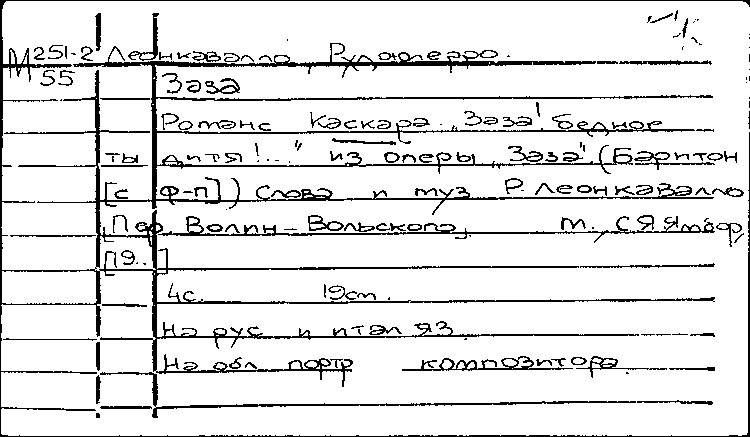 М 251-2 Леонкавалло, Руджиерро.
55 Заза
Романс Каскара „Заза! бедное
ты дитя!..." из оперы „Заза". (Баритон
[с ф-п]) Слова и муз Р. Леонкавалло
[Пер. Волин-Вольского] М.,
[19..]
4с. 19см.
На рус и итал яз.
На обл портр композитора.